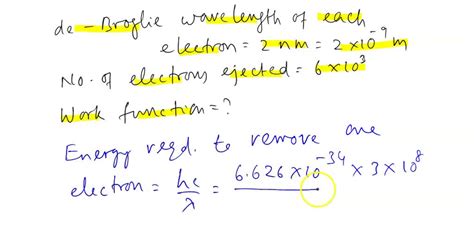 de-Broglie wavelength of each
electron = 2 nm = 2 × 10⁻⁹ m
No. of electrons ejected = 6 × 10³
Work function = ?
Energy reqd. to remove one
electron = hc/λ = 6.626 × 10⁻³⁴ × 3 × 10⁸